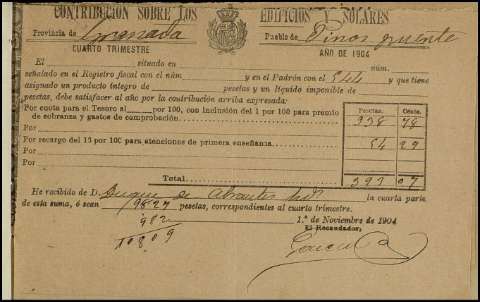 CONTRIBUCIÓN SOBRE LOS EDIFICIOS Y SOLARES
Provincia de Granada Pueblo de Pinos puente
CUARTO TRIMESTRE AÑO DE 1904
El situado en núm.
señalado en el Registro fiscal con el núm. y en el Padrón con el y que tiene
asignado un producto íntegro de pesetas y un líquido imponible de
pesetas, debe satisfacer al año por la contribución arriba expresada:
Pesetas. Cénts.
Por cuota para el Tesoro al por 100, con inclusión del 1 por 100 para premio
de cobranza y gastos de comprobación. 338 78
Por
Por recargo del 15 por 100 para atenciones de primera enseñanza. 54 29
Por
Total. 393 07
He recibido de D. Duque de Abrantes la cuarta parte
de esta suma, ó sean 9827 pesetas, correspondientes al cuarto trimestre.
982
1.º de Noviembre de 1904
10809
El Recaudador,